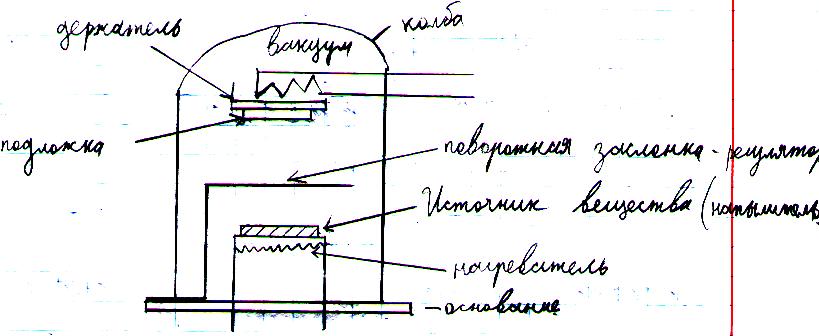 держатель
колба
вакуум
подложка
поворотная заслонка - регулятор
Источник вещества (напылитель)
нагреватель
- основание